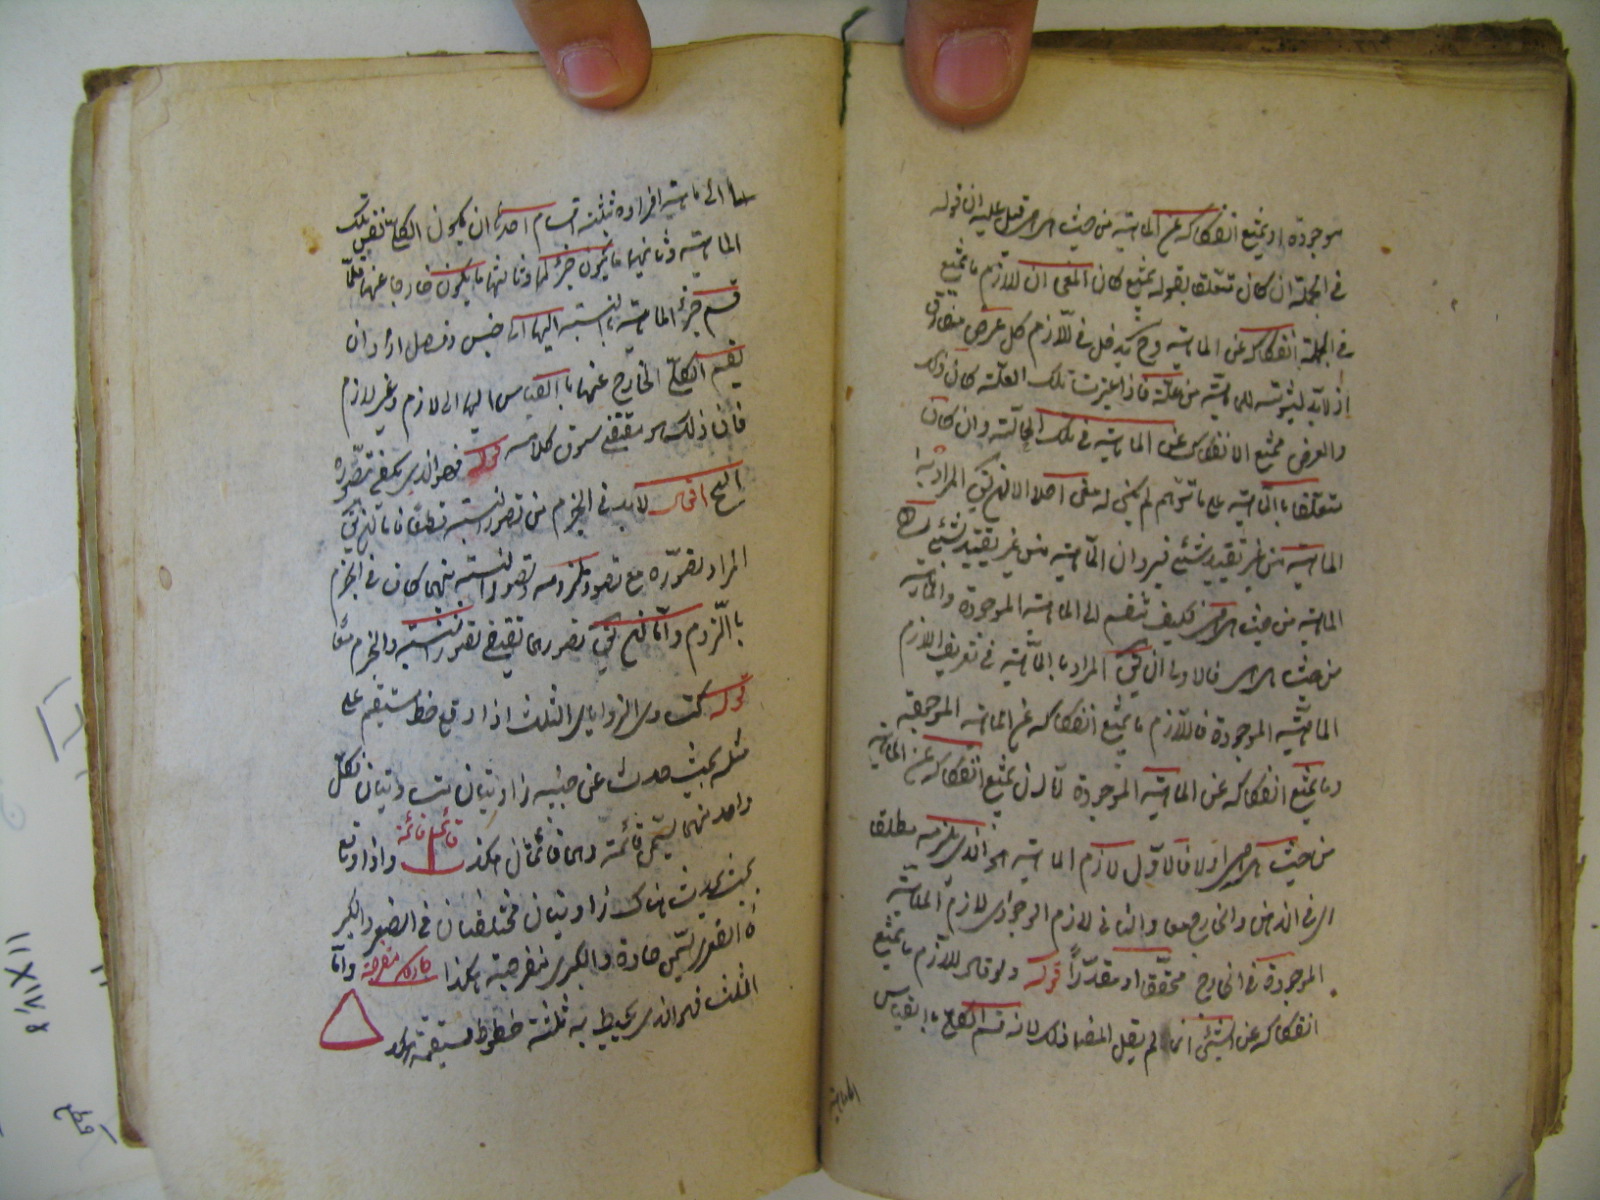 موجودة او يمتنع انفكاكه عن الماهية من حيث هى هى قيل عليه ان قوله
فى الجملة ان كان متعلقا بقوله يمتنع كان المعنى ان اللازم ما يمتنع
فى الجملة انفكاكه عن الماهية وح يدخل فى اللازم كل عرض مفارق
اذ لابد لثبوته للماهية من علة فاذا اعتبرت تلك العلة كان ذلك
والعرض ممتنع الانفكاك عن الماهية فى تلك الحالة وان كان
متعلقا بالماهية على ما توهم لم يكن له معنى اصلا الا ان يكون المراد به
الماهية من غير تقييد بشئ فيرد ان الماهية من غير تقييد بشئ هى
الماهية من حيث هى هى فكيف تنقسم الى الماهية الموجودة والماهية
من حيث هى هى فالاولى ان يق المراد بالماهية فى تعريف اللازم
الماهية الموجودة فاللازم ما يمتنع انفكاكه عن الماهية الموجودة
وما يمتنع انفكاكه عن الماهية الموجودة اما ان يمتنع انفكاكه عن الماهية
من حيث هى هى اولا فالاول لازم الماهية هو الذى يلزمه مطلقا
اى فى الذهن والخارج معا والثانى لازم الوجود اى لازم الماهية
الموجودة فى الخارج محققا او مقدرا قوله ولو قال اللازم ما يمتنع
انفكاكه عن الشئ انما لم يقل المص ذلك لانه قسم الكلى بالقياس
الى ماهية افراده ثلثة اقسام احدها ان يكون الكلى نفس تلك
الماهية وثانيها ما يكون جزء لها وثالثها ما يكون خارجا عنها فلما
قسم جزء الماهية بالنسبة اليها الى جنس وفصل اراد ان
يقسم الكلى الخارج عنها بالقياس اليها الى لازم وغير لازم
فان ذلك هو مقتضى سوق كلامه قوله فهو الذى يكفى تصوره
الخ اقول لابد فى الجزم من تصور النسبة قطعا فاما ان يق
المراد تصوره مع تصور ملزومه وتصور النسبة بينهما كان فى الجزم
باللزوم واما ان يق تصورهما يقتضى تصور النسبة والجزم معا
قوله كتساوى الزوايا الثلث اذا وقع خط مستقيم على
مثله بحيث حدث عن جنبيه زاويتان متساويتان فكل
واحد منهما يسمى قائمة وهما قائمتان هكذا قائمة قائمة واذا وقع
بحيث يحدث هناك زاويتان مختلفتان فى الصغر والكبر
فالصغرى تسمى حادة والكبرى منفرجة هكذا حادة منفرجة واما
المثلث فهو الذى يحيط به ثلثة خطوط مستقيمة هكذا